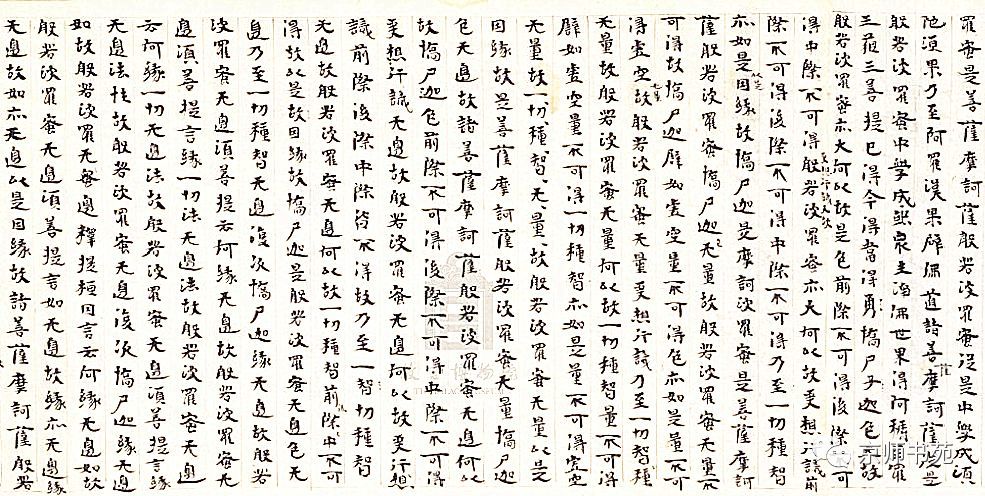 羅蜜是菩薩摩訶薩般若波羅蜜從是中學成須
陀洹果乃至阿羅漢果辟佛道諸菩摩訶薩是
般若波羅蜜中學成就衆生淨佛世界得阿耨羅
三藐三菩提已得今得當得憍尸迦色故
般若波羅蜜亦大何以故是色前際不可得後際不可
得中際不可得般若波羅蜜亦大何以故受想行識前
際不可得後際不可得中際不可得乃至一切種智
亦如是因緣故憍尸迦是摩訶波羅蜜是菩薩摩訶
薩般若波羅蜜憍尸迦无量故般若波羅蜜无量不
可得故憍尸迦辟如虛空量不可得色亦如是量不可
得虛空故般若波羅蜜无量受想行識乃至一切種智
无量故般若波羅蜜无量何以故一切種智量不可得
辟如虛空量不可得一切種智亦如是量不可得虛空
无量故一切種智无量故般若波羅蜜无量以是
因緣故是菩薩摩訶薩般若波羅蜜无量憍尸迦
色无邊故諸菩薩摩訶薩般若波羅蜜无邊何以
故憍尸迦色前際不可得後際不可得中際不可得
受想行識无邊故般若波羅蜜无邊何以故受行想
識前際後際中際皆不得故乃至一智切種智
无邊故般若波羅蜜无邊何以故一切種智前際中不可
得故以是故因緣故憍尸迦是般若波羅蜜无邊色无
邊乃至一切種智无邊復次憍尸迦緣无邊故般若
波羅蜜无邊須菩提云何緣无邊故般若波羅蜜无
邊須菩提言緣一切法无邊法故般若波羅蜜无邊
云何緣一切无邊法故般若波羅蜜无邊須菩提言緣
无邊法性故般若波羅蜜无邊復次憍尸迦緣无邊
如故般若波羅无蜜邊釋提桓因言云何緣无邊如故
般若波羅蜜无邊須菩提言如无邊故緣亦无邊緣
无邊故如亦无邊以是因緣故諸菩薩摩訶薩般若
京师书苑